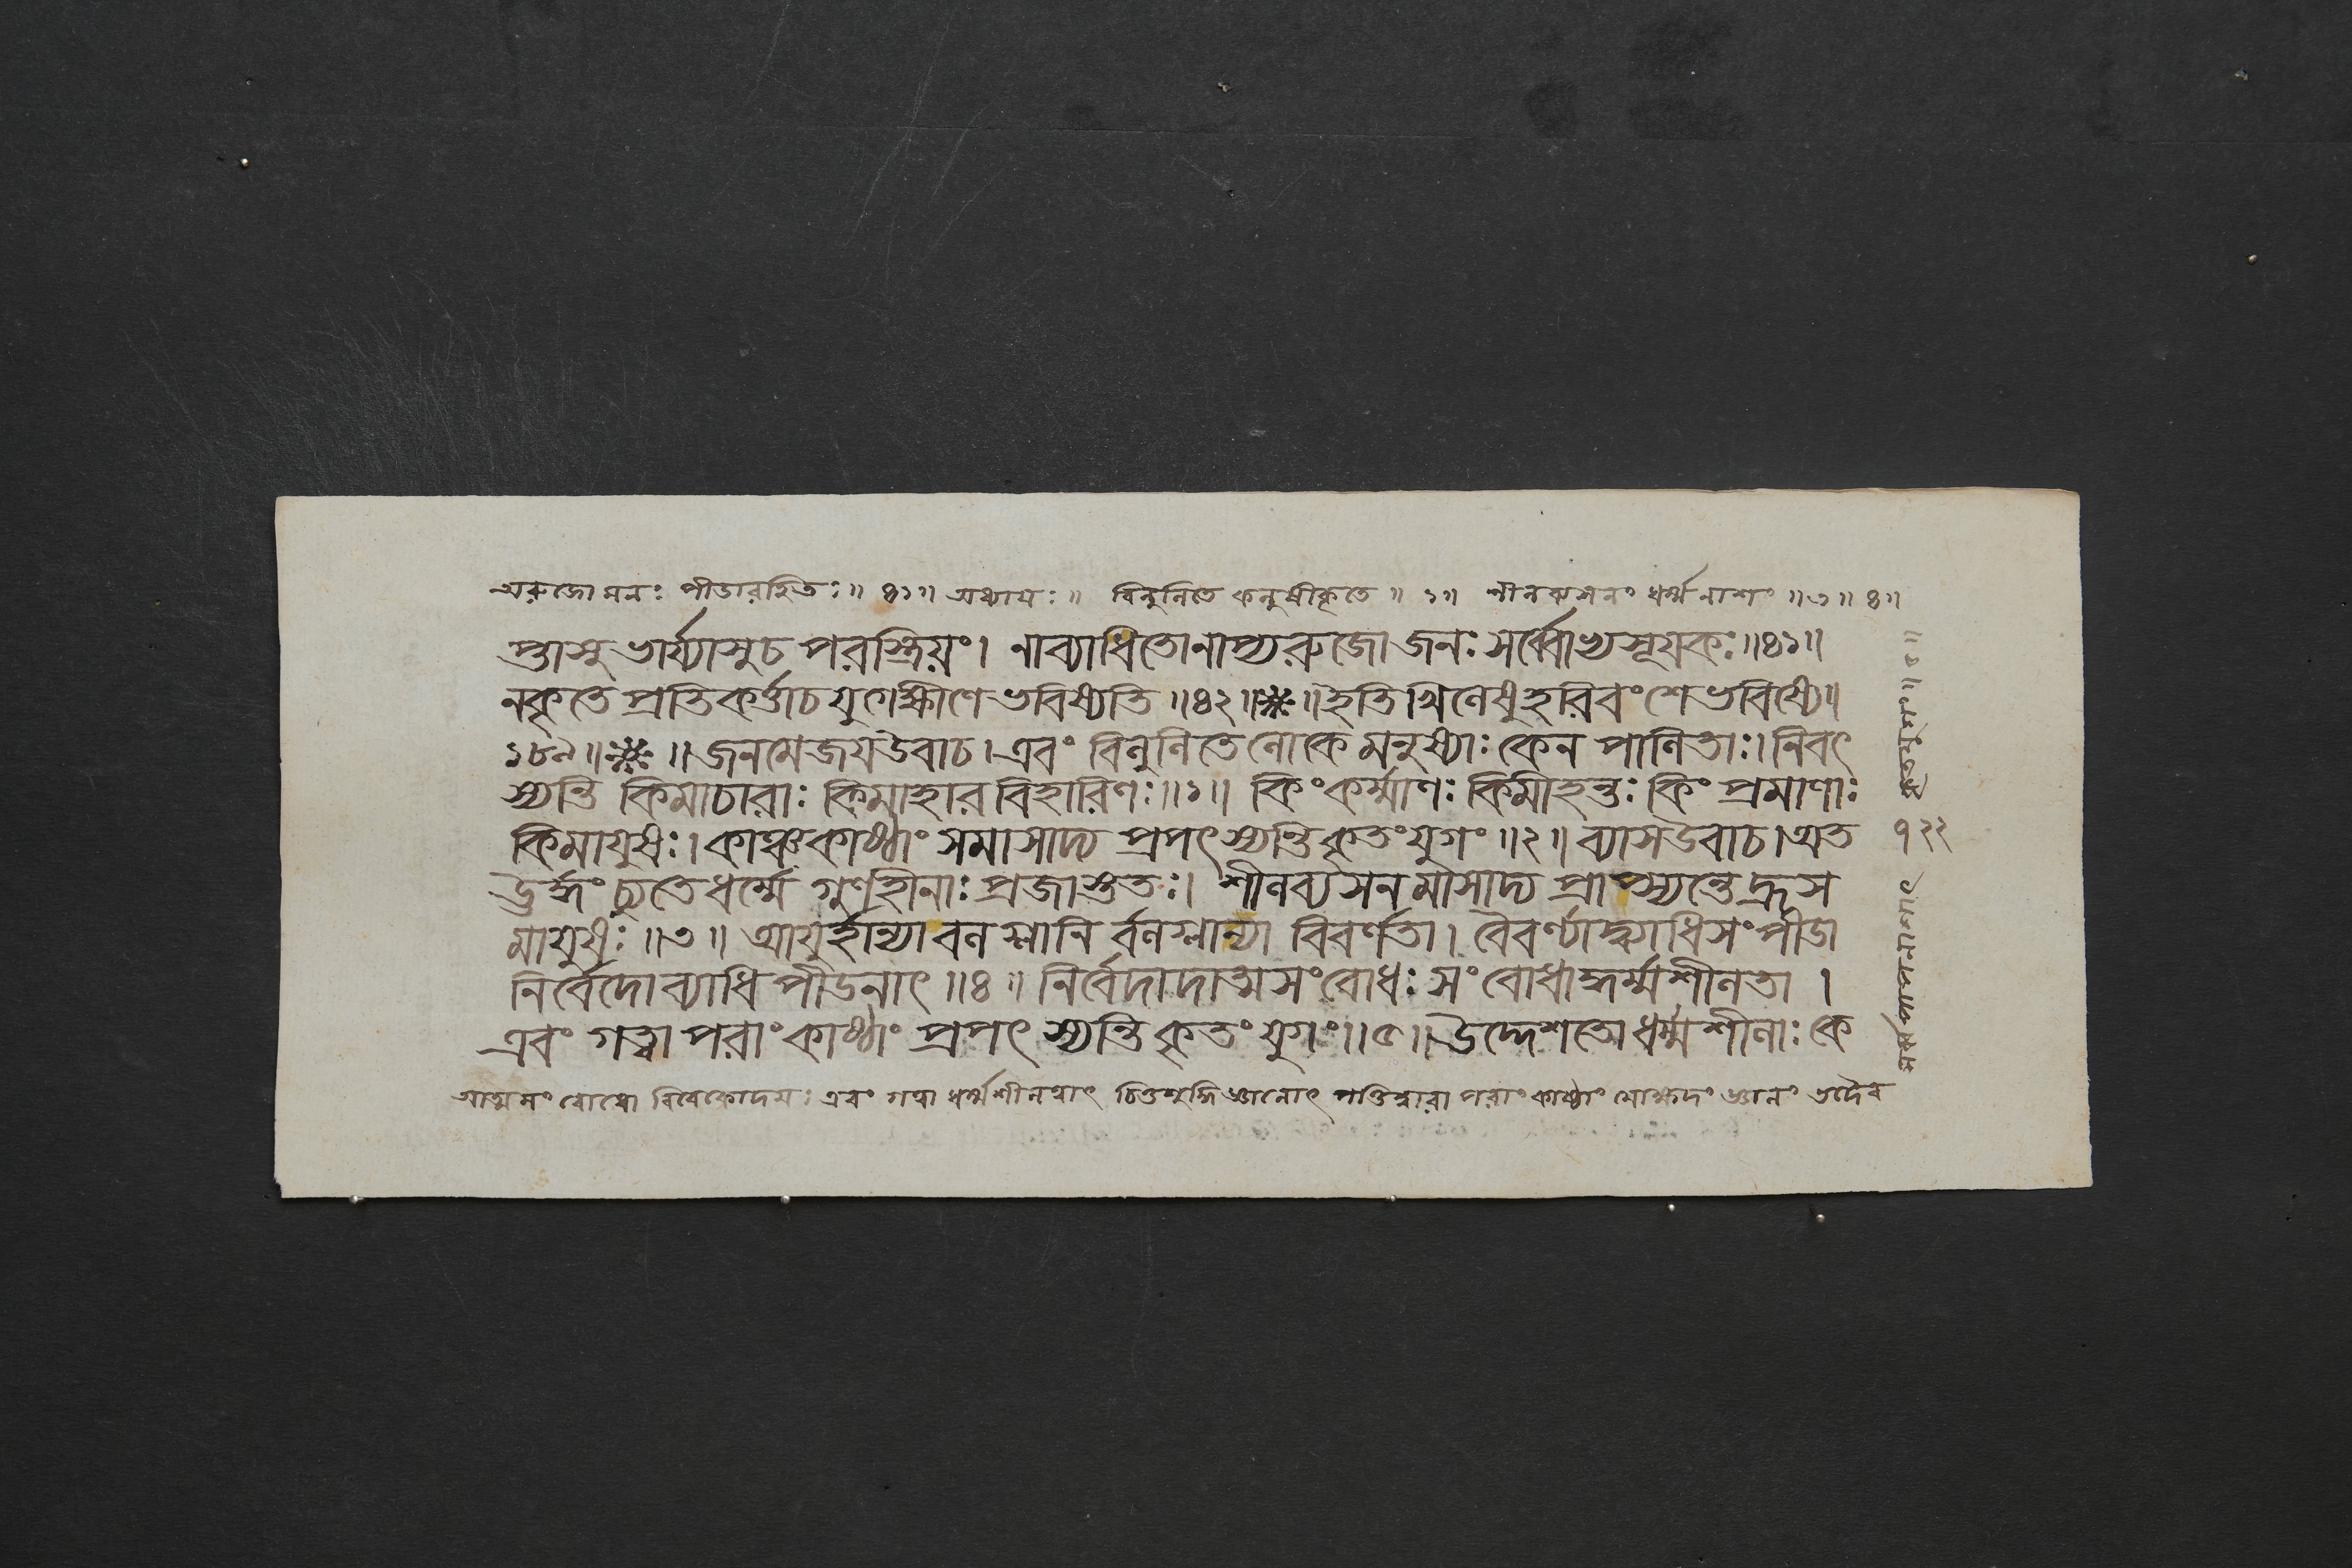 অরুজো মনঃ পীডারহিতঃ॥ ৪১॥ অধ্যায়ঃ॥ বিলুলিতে কলুষীকৃতে॥ ১॥ শীলব্যসনং ধর্ম্মনাশং॥৩॥৪॥
স্তাসু ভার্য্যাসু চ পরস্ত্রিয়ং। নাব্যাধিতোনাপ্যরুজো জনঃ সর্ব্বোভ্যসূয়কঃ॥৪১॥
নকৃতে প্রতিকর্ত্তাচ যুগেক্ষীণে ভবিষ্যতি॥৪২॥❈॥ইতি খিলেষু হরিবংশে ভবিষ্যে॥
১৮৯॥❈॥জনমেজয়উবাচ।এবং বিলুলিতে লোকে মনুষ্যাঃ কেন পালিতাঃ।নিবৎ
স্যন্তি কিমাচারাঃ কিমাহার বিহারিণঃ॥১॥ কিংকর্ম্মাণঃ কিমীহন্তঃ কিং প্রমাণাঃ
কিমায়ুষঃ।কাঞ্চকাষ্ঠাং সমাসাদ্য প্রপৎস্যন্তি কৃতংযুগং॥২॥ব্যাসউবাচ।অত
ঊর্দ্ধং চ্যুতেধর্ম্মে গুণহীনাঃ প্রজাস্ততঃ। শীলব্যসনমাসাদ্য প্রাপ্স্যন্তে হ্রাস
মায়ুষঃ॥৩॥ আয়ুর্হান্যা বলগ্লানি র্বলগ্লান্যা বিবর্ণতা। বৈবর্ণ্যাদ্ব্যাধিসংপীডা
নির্বেদোব্যাধিপীডনাৎ॥৪॥ নির্বেদাদাত্মসংবোধঃ সংবোধাদ্ধর্ম্মশীলতা।
এবং গত্বা পরাং কাষ্ঠাং প্রপৎস্যন্তি কৃতং যুগং॥৫॥উদ্দেশতো ধর্ম্মশীলাঃ কে
আত্মনং বোধো বিবেকোদয়ঃ এবং গত্বা ধর্ম্মশীলত্বাৎ চিত্তশুদ্ধি পরাং কাষ্ঠাং মোক্ষদং জ্ঞানং তদৈব
১২২